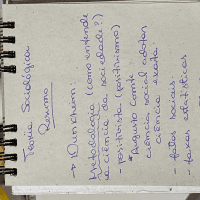 Teoria Sociológica
Resumo
→ Durkheim:
Metodologia (como entende
a ciência da sociedade?)
- positivista (positivismo)
* Augusto Comte
ciência social adotar
ciência exata
- fatos sociais
- taxas estatísticas